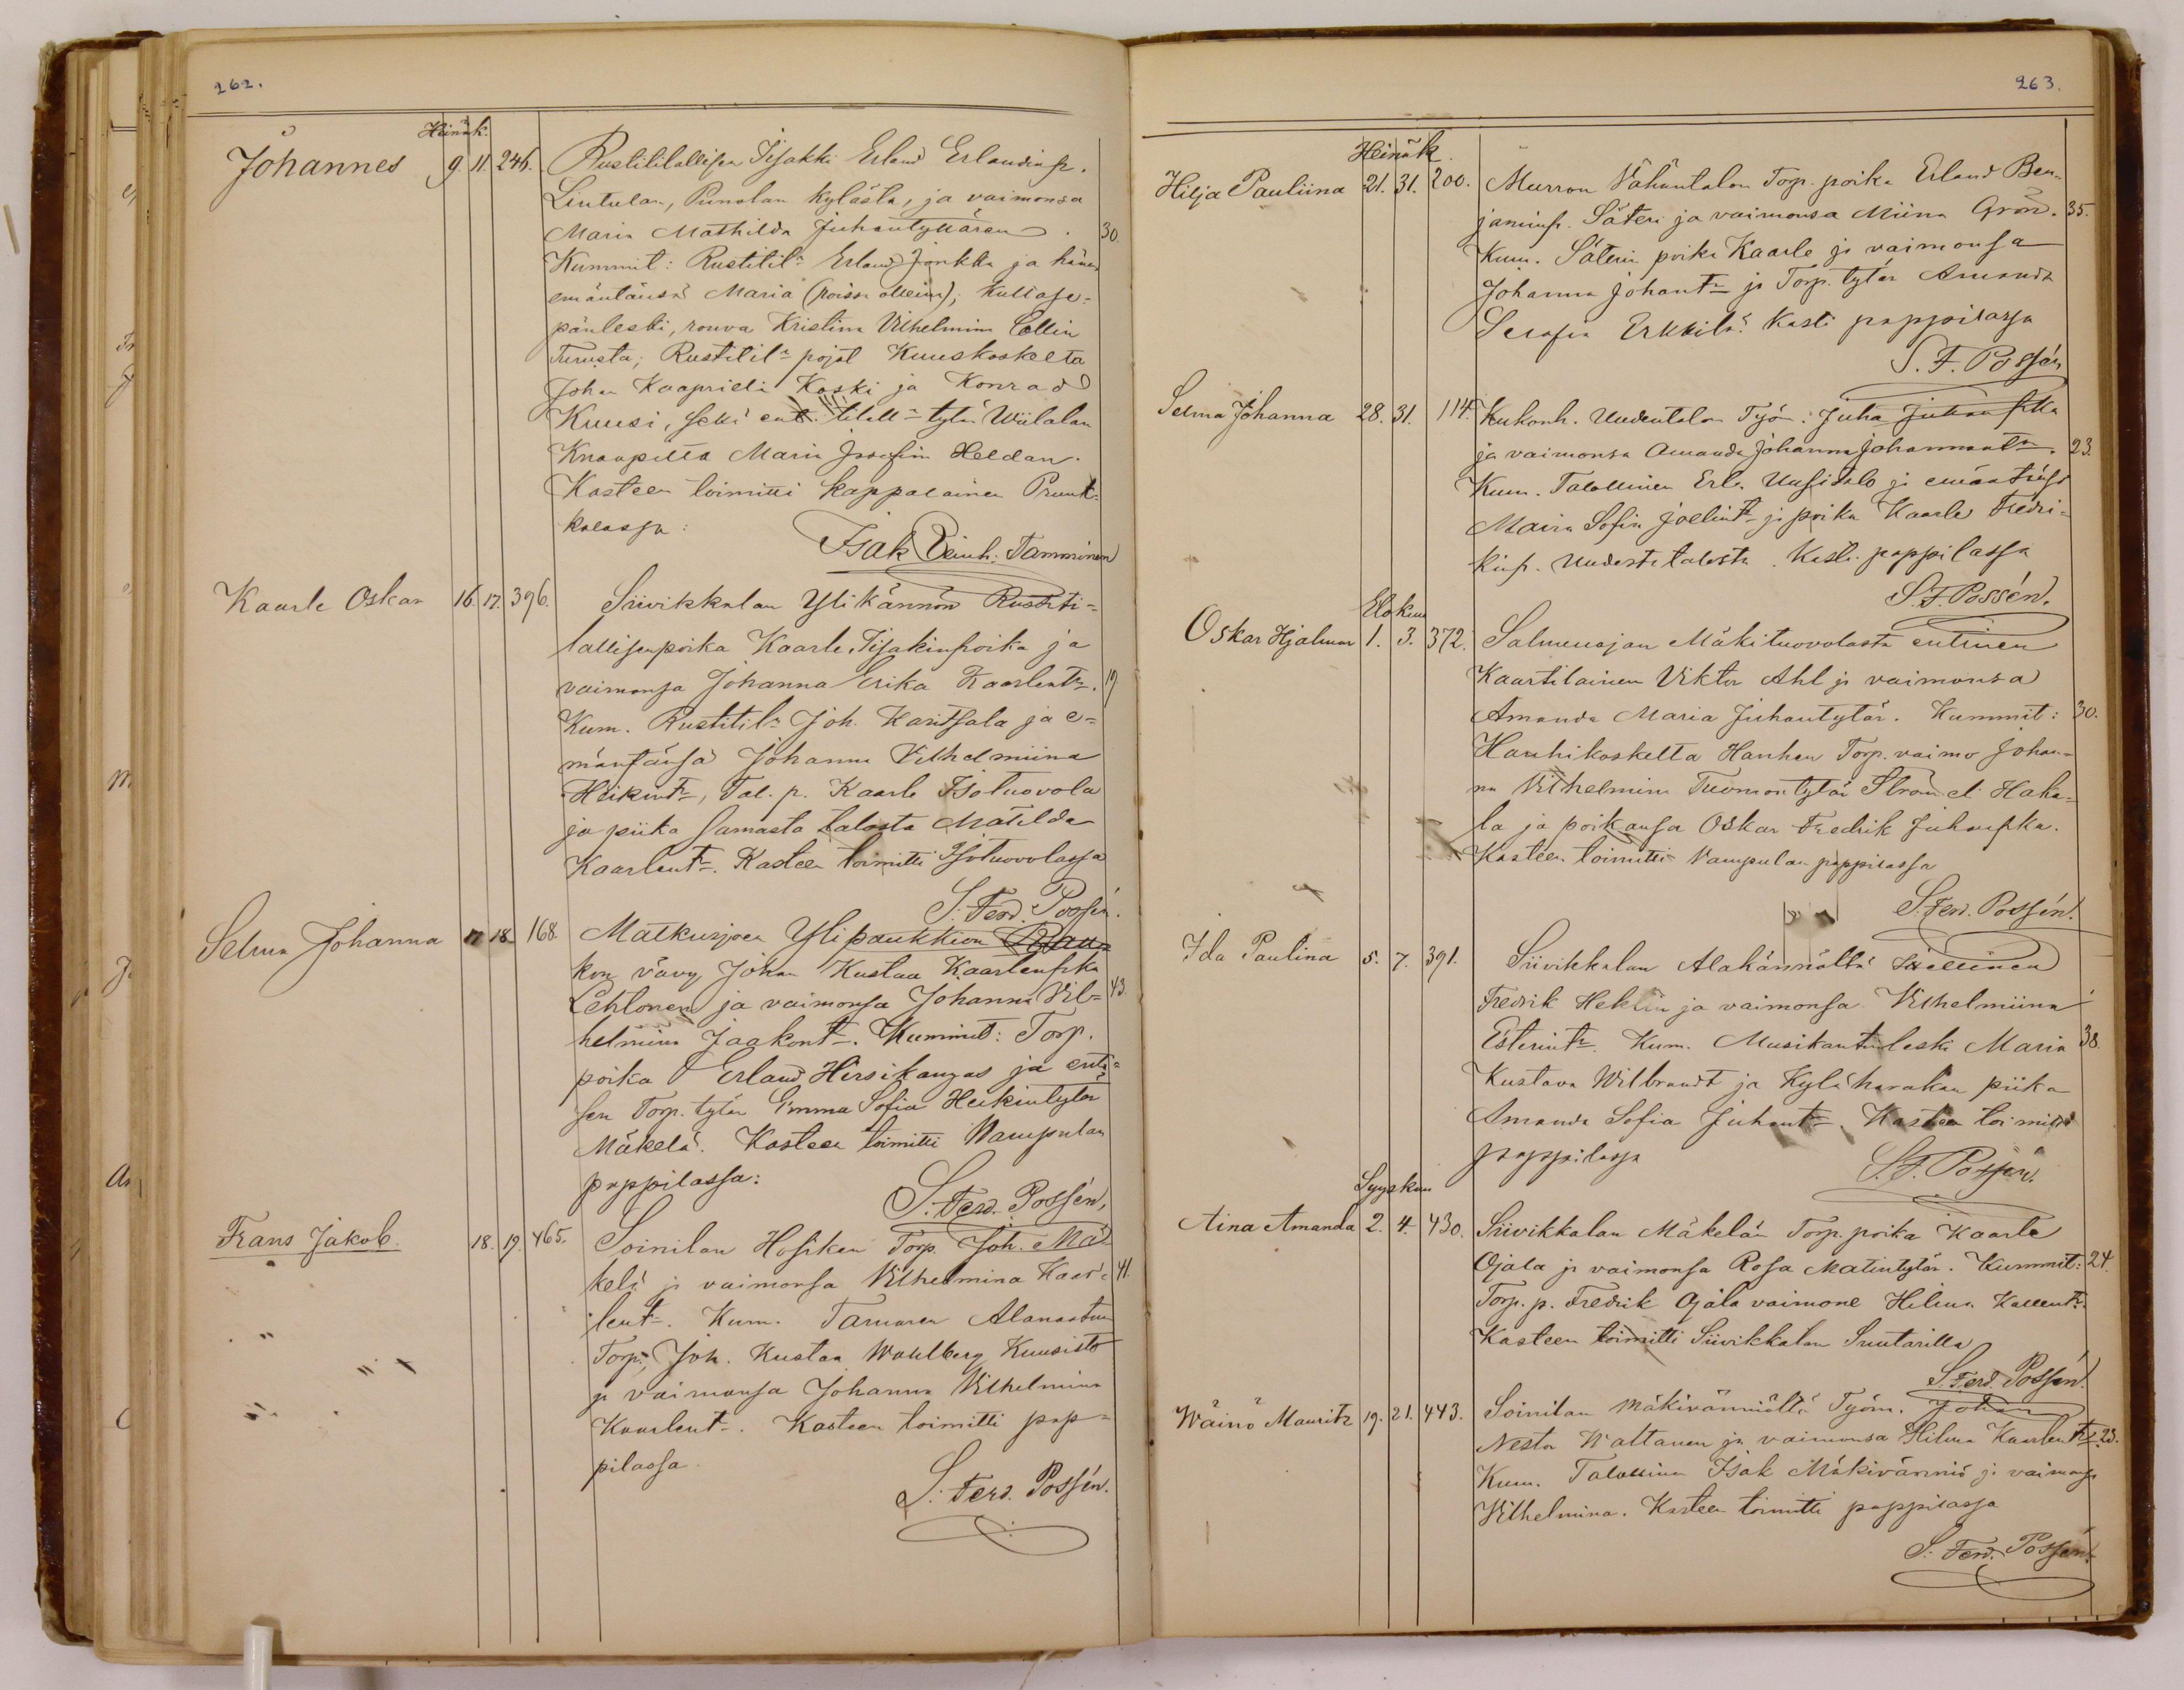 262.
Heinäk.
Johannes 9. 11. 246. Rustitilallisen Iisakki Erland Erlandinp.
Lintulan, Punolan kylästä, ja vaimonsa
Maria Mathilda Juhantyttären. 30.
Kummit: Rustitil:n Erland Jonkka ja hänen
emäntänsä Maria (poissa olleina); Kultase-
pänleski, rouva Kristina Vilhelmina Collin
Turusta; Rustitil:n pojat Kuuskoskelta
Johan Kaaprieli Koski ja Konrad
Kuusi, sekä ent. tilall:n tytär Wiilalan
Knaapilta Maria Josefina Heldan.
Kasteen toimitti kappalainen Prunk-
kalassa:
Isak Reinh. Tamminen
Kaarle Oskar 16. 17. 396. Siivikkalan Ylikännön Rustiti-
lallisenpoika Kaarle Iisakinpoika ja
vaimonsa Johanna Erika Kaarlent:r. 19
Kum. Rustitil:n Joh. Karitsala ja e-
mäntänsä Johanna Vilhelmiina
Heikint:r, Tal. p. Kaarle Isotuovola
ja piika samasta talosta Matilda
Kaarlent:r. Kasteen toimitti Isotuovolassa
S. Ferd. Possén.
Selma Johanna 17 18. 168. Matkusjoen Ylipaukkion
kon vävy Johan Kustaa Kaarlenpka
Lehtonen ja vaimonsa Johanna Vil- 43.
helmiina Jaakont:r. Kummit: Torp.
poika Erland Hirsikangas ja enti-
sen Torp. tytär Emma Sofia Heikintytär
Mäkelä. Kasteen toimitti Wampulan
pappilassa:
S. Ferd. Possén,
Frans Jakob. 18. 19. 465. Soinilan Hosiken Torp. Joh. Mä-
kelä ja vaimonsa Vilhelmina Kaar- 41.
lent:r. Kum. Alanaatun
Torp. Joh. Kustaa Wahlberg Kuusisto
ja vaimonsa Johanna Vilhelmina
Kaarlent:r. Kasteen toimitti pap-
pilassa.
S. Ferd. Possén.
263.
Heinäk.
Hilja Pauliina 21. 31. 200. Murron Vähäntalon Torp. poika Erland Ben-
jaminp. Säteri ja vaimonsa Miina Grön. 35.
Kum. Säterin poika Kaarle ja vaimonsa
Johanna Johant:r ja Torp. tytär Amanda
Serafia Erkkilä. Kasti pappilassa
S. F. Possén
Selma Johanna 28. 31. 114. Kukonh. Uudentalon Työm. Juha Juhanpka
ja vaimonsa Amanda Johanna Johannant:r. 23.
Kum. Talollinen Erl. Uusitalo ja emäntänsä
Maria Sofia Joelint:r ja poika Kaarle Fredri-
kinp. Uudesta talosta. Kasti pappilassa
S. F. Possén.
Elokuu
Oskar Hjalmar 1. 3. 372. Salmenojan Mäkituovolasta entinen
Kaartilainen Viktor Ahl ja vaimonsa
Amanda Maria Juhantytär. Kummit: 30.
Hanhikoskelta Hanhen Torp. vaimo Johan-
na Vilhelmina Tuomontytär Ström eli Haka-
la ja poikansa Oskar Fredrik Juhanpka.
Kasteen toimitti Vampulan pappilassa
S. Ferd. Possén.
Ida Paulina 5. 7. 391. Siivikkalan Alakännöltä Itsellinen
Fredrik Heklin ja vaimonsa Vilhelmiina
Esterint:r. Kum. Musikantinleski Maria 38.
Kustava Wilbrandt ja Kyläharakan piika
Amanda Sofia Juhant:r. Kasteen toimitti
pappilassa
S. F. Possén.
Syyskuu
Aina Amanda 2. 4. 430. Siivikkalan Mäkelän Torp. poika Kaarle
Ojala ja vaimonsa Rosa Matintytär. Kummit: 24.
Torp. p. Fredrik Ojala vaimone Hilma Kallent:r.
Kasteen toimitti Siivikkalan Suutarilla
S. Ferd. Possén.
Wäinö Mauritz 19. 21. 443. Soinilan Mäkivänniöltä Työm. Johan
Nestor Wattanen ja vaimonsa Hilma Kaarlent:r. 23.
Kum. Talollinen Isak Mäkivänniö ja vaimonsa
Vilhelmina. Kasteen toimitti pappilassa
S. Ferd. Possén.